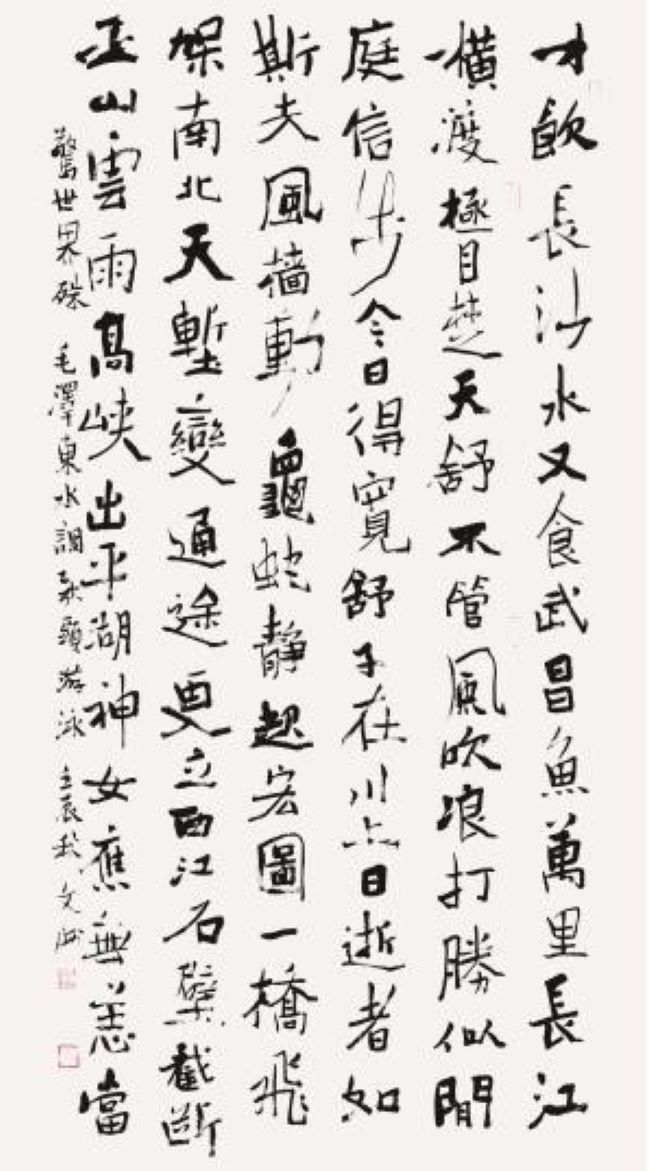 才飲長沙水又食武昌魚萬里長江
橫渡極目楚天舒不管風吹浪打勝似閒
庭信步今日得寬舒子在川上曰逝者如
斯夫風檣動龜蛇靜起宏圖一橋飛
架南北天塹變通途更立西江石壁截斷
巫山雲雨高峽出平湖神女應無恙當
驚世界殊 毛澤東水調歌頭游泳 壬辰秋 文